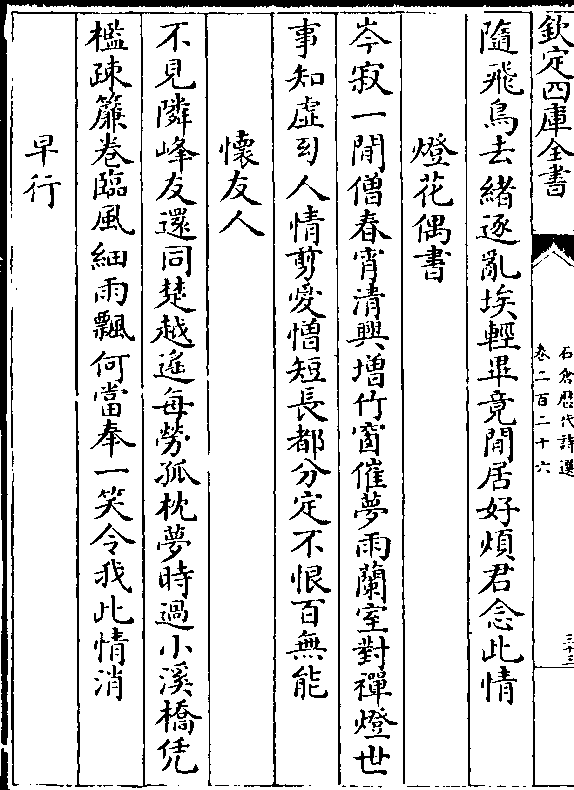 欽定四庫全書
石倉歷代詩選
卷二百二十六
三十三
隨飛鳥去緒逐亂埃輕畢竟閒居好煩君念此情
燈花偶書
岑寂一閒僧春宵清興增竹窗催夢雨蘭室對禪燈世
事知虛幻人情剪愛憎短長都分定不恨百無能
懷友人
不見隣峰友還同楚越遙每勞孤枕夢時過小溪橋凭
檻疎簾卷臨風細雨飄何當奉一笑令我此情消
早行